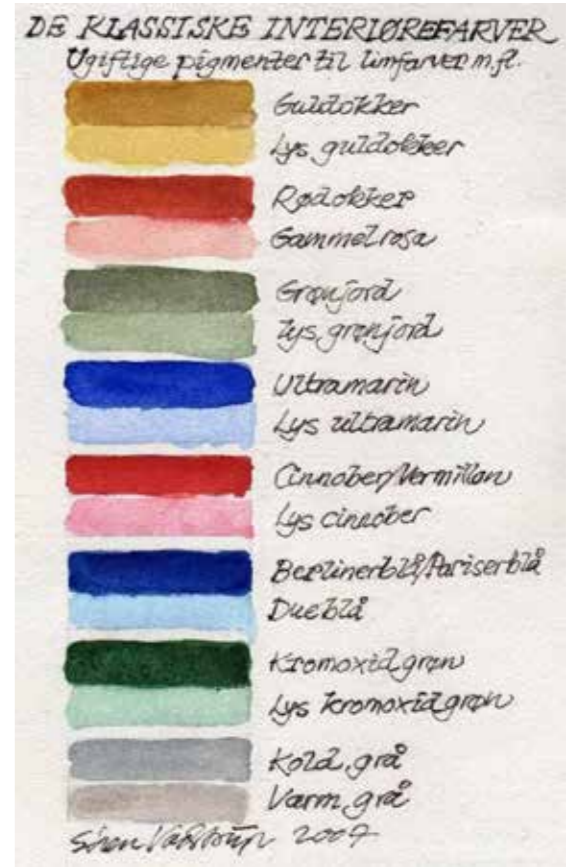 DE KLASSISKE INTERIØREFARVER
Ugiftige pigmenter til limfarver m.fl.
Guldokker
Lys guldokker
Rødokker
Gammelrosa
Grønjord
Lys grønjord
Ultramarin
Lys ultramarin
Cinnober/Vermillon
Lys cinnober
Berlinerblå/Pariserblå
Dueblå
Kromoxidgrøn
Lys kromoxidgrøn
Kold grå
Varm grå
Søren Vadstrup 2007